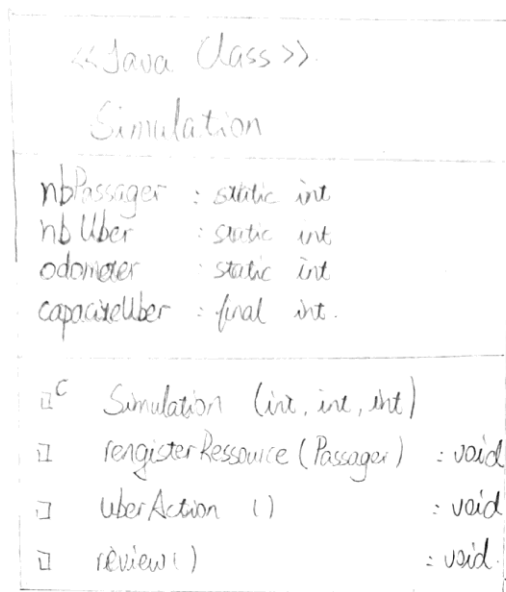 <<Java Class>>
Simulation
nbPassager : static int
nb Uber : static int
odometer : static int
capaciteUber : final int.
C Simulation (int, int, int)
rengisterRessource (Passager) : void
uberAction () : void
review () : void.